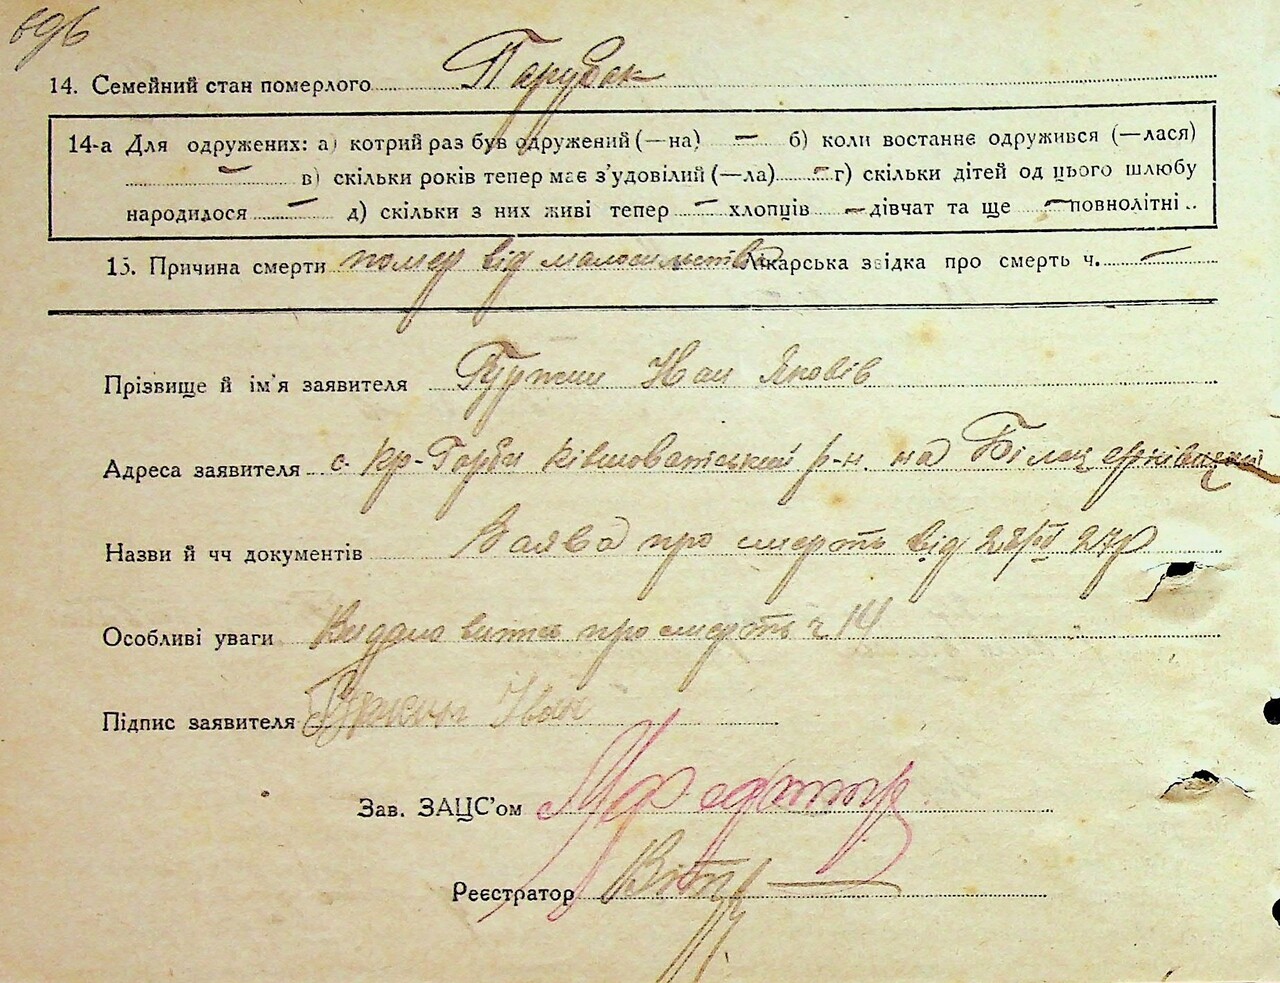 696
14. Семейний стан померлого Парубок
14-а Для одружених: а) котрий раз був одружений (—на) — б) коли востаннє одружився (—лася)
— в) скільки років тепер має з’удовілий (—ла) — г) скільки дітей од цього шлюбу
народилося — д) скільки з них живі тепер — хлопців — дівчат та ще — повнолітні
15. Причина смерти помер від малосильства Лікарська звідка про смерть ч. —
Прізвище й ім’я заявителя Гуржин Яковів
Адреса заявителя с. Кр-Горби Ківшоватський р-н. на Білоцерківщині
Назви й чч документів Заява про смерть від 27р
Особливі уваги Видано витяг про смерть ч 14
Підпис заявителя Іван
Зав. ЗАЦС’ом
Реєстратор